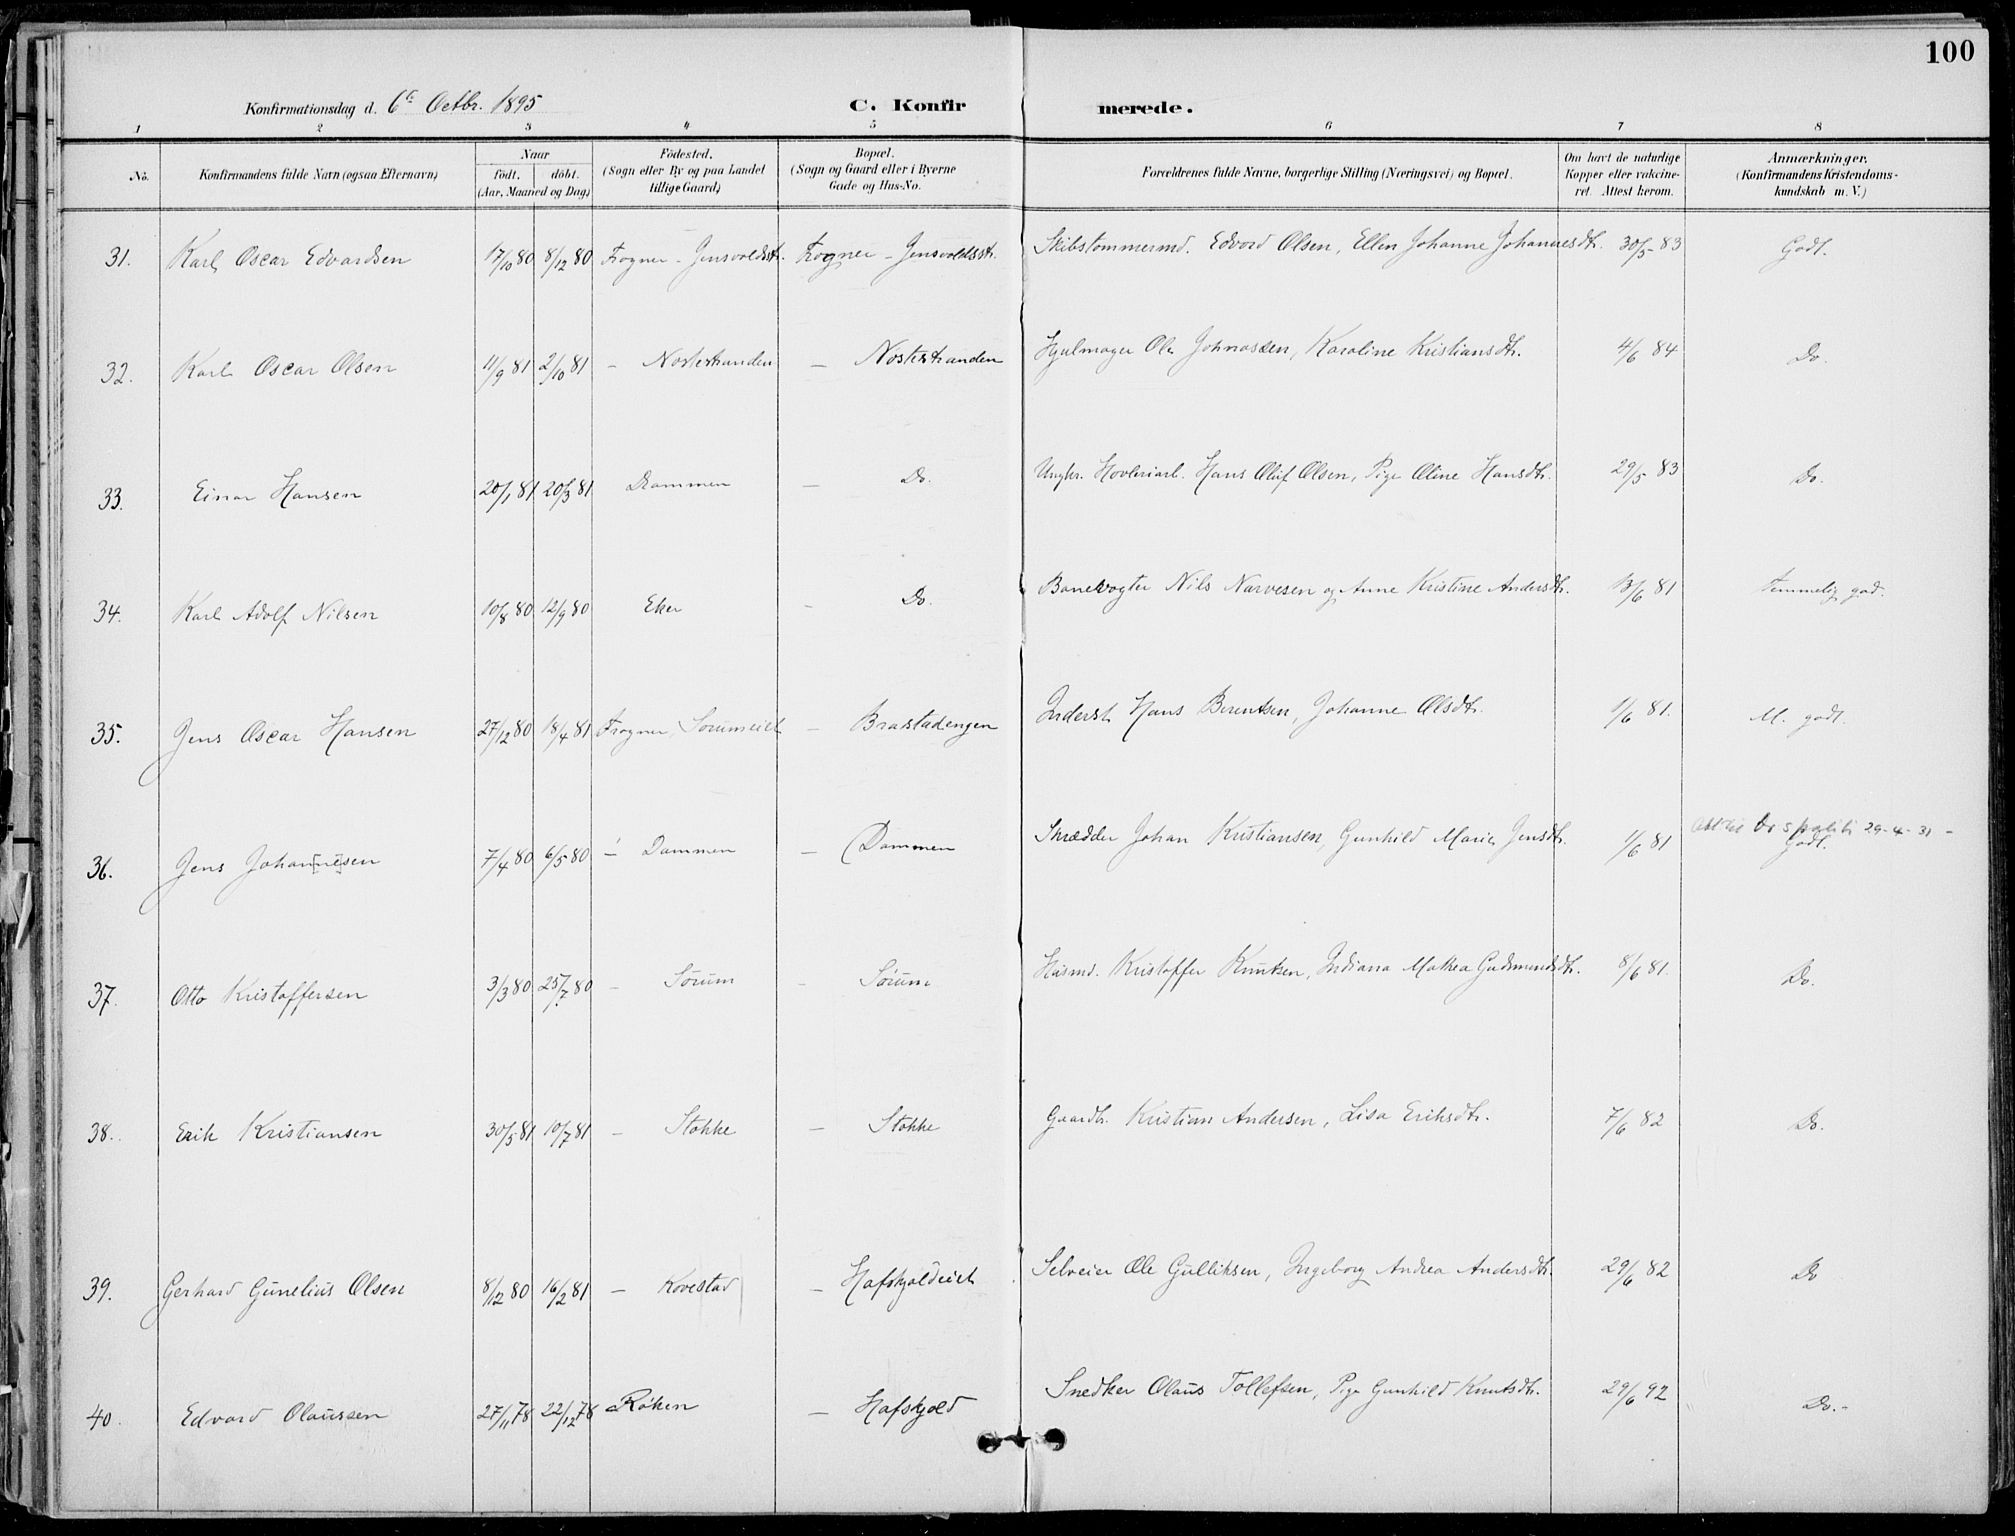 100
Konfirmationsdag d. 6te Octbr. 1895 C. Konfirmerede.
1 2 3 4 5 6 7 8
No. Konfirmandens fulde Navn (ogsaa Efternavn) Naar födt. döbt. (Aar, Maaned og Dag) Födested. (Sogn eller By og paa Landet tillige Gaard) Bopæl. (Sogn og Gaard eller i Byerne Gade og Hus-No. Forældrenes fulde Navne, borgerlige Stilling (Næringsvei) og Bopæl. Om havt de naturlige Kopper eller vakcineret. Attest herom. Anmærkninger. (Konfirmandens Kristendomskundskab m. V.)
31. Karl Oscar Edvardsen 17/10 80 8/12 80 Frogner - Gensvoldsstr. Frogner - Gensvoldsstr. Skibstømmermd. Edvard Olsen, Ellen Johanne Johannesdtr. 30/5 83 Godt.
32. Karl Oscar Olsen 11/9 81 2/10 81 - Nostestranden - Nostestranden Hjulmager Ole Johnassen, Karoline Kristiansdtr. 4/6 84 Do.
33. Einar Hansen 20/1 81 20/3 81 Drammen - Do. Ungkr. Høvleriarb. Hans Oluf Olsen, Pige Oline Hansdtr. 29/5 83 Do.
34. Karl Adolf Nilsen 10/8 80 12/9 80 Eker - Do. Banevogter Nils Narvesen og Anne Kristine Andersdtr. 13/6 81 Temmelig god.
35. Jens Oscar Hansen 27/12 80 18/4 81 Frogner, Sørumeiet - Brastadengen Inderst Hans Berentsen, Johanne Olsdtr. 1/6 81. M. godt.
36. Jens Johannesen 7/4 80 6/5 80 - Dammen - Dammen Skrædder Johan Kristiansen, Gunhild Marie Jensdtr. 1/6 81 29-4-31 - Godt.
37. Otto Kristoffersen 3/3 80 25/7 80 - Sørum - Sørum Husmd. Kristoffer Knutsen, Indiana Mathea Gudmundsdtr. 8/6 81. Do.
38. Erik Kristiansen 30/5 81 10/7 81 - Stokke - Stokke Gaardbr. Kristian Andersen, Lisa Eriksdtr. 7/6 82 Do.
39. Gerhard Gunelius Olsen 8/12 80 16/2 81 - Kovestad - Hafskjoldeiet Selveier Ole Gulliksen, Ingeborg Andrea Andersdtr. 29/6 82 Do
40. Edvard Olaussen 27/11 78 22/12 78 Røken - Hafskjold Snedker Olaus Tollefsen, Pige Gunhild Knutsdtr. 29/6 92 Do.-